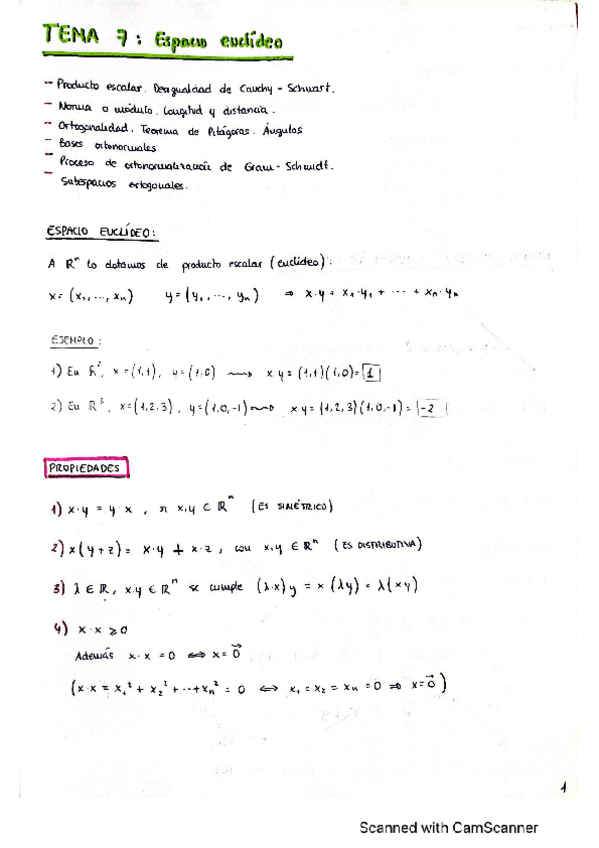 TEMA 7: Espacio euclídeo
- Producto escalar. Desigualdad de Cauchy-Schwart.
- Norma o módulo. Longitud y distancia.
- Ortogonalidad. Teorema de Pitágoras. Ángulos
- Bases ortonormales
- Proceso de ortonormalización de Gram-Schmidt.
- Subespacios ortogonales.
ESPACIO EUCLÍDEO:
A Rⁿ lo dotamos de producto escalar (euclídeo):
x = (x₁, ..., xₙ) y = (y₁, ..., yₙ) ⇒ x·y = x₁·y₁ + ··· + xₙ·yₙ
EJEMPLO:
1) En R², x = (1,1), y = (1,0) ⟿ x y = (1,1)(1,0) = 1
2) En R³, x = (1,2,3), y = (1,0,-1) ⟿ x y = (1,2,3)(1,0,-1) = -2
PROPIEDADES
1) x·y = y·x, si x,y ∈ Rⁿ (ES SIMÉTRICO)
2) x(y+z) = x·y + x·z, con x,y ∈ Rⁿ (ES DISTRIBUTIVA)
3) λ ∈ R, x,y ∈ Rⁿ se cumple (λ·x)y = x(λy) = λ(xy)
4) x·x ⩾ 0
Además x·x = 0 ⇔ x = 0⃗
(x·x = x₁² + x₂² + ··· + xₙ² = 0 ⇔ x₁ = x₂ = xₙ = 0 ⇒ x = 0⃗)
1
Scanned with CamScanner